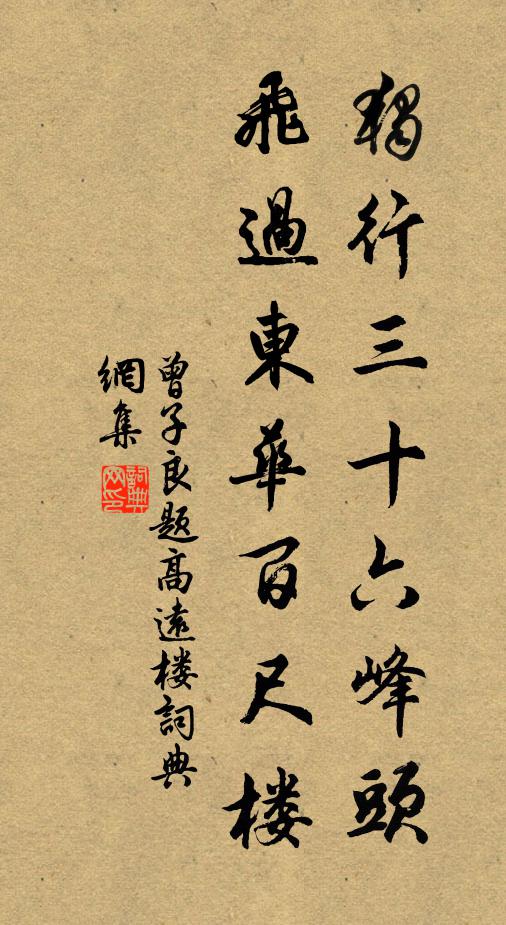 獨行三十六峰頭
飛過東華百尺楼
曾子良題高遠楼詞典
網集
詞典
网印